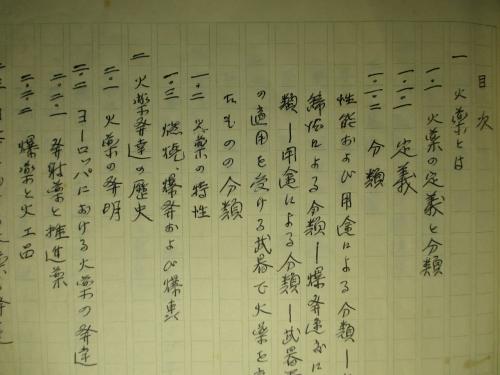 目次
一 火薬とは
一・一 火薬の定義と分類
一・一・一 定義
一・一・二 分類
性能および用途による分類ー
組成による分類ー爆発速度に
類ー用途による分類ー武器
の適用を受ける武器で火薬を
たものの分類
一・二 火薬の特性
一・三 燃焼、爆発および爆轟
二 火薬発達の歴史
二・一 火薬の発明
二・二 ヨーロッパにおける火薬の発達
二・二・一 発射薬と推進薬
二・二・二 爆薬と火工品
二・三